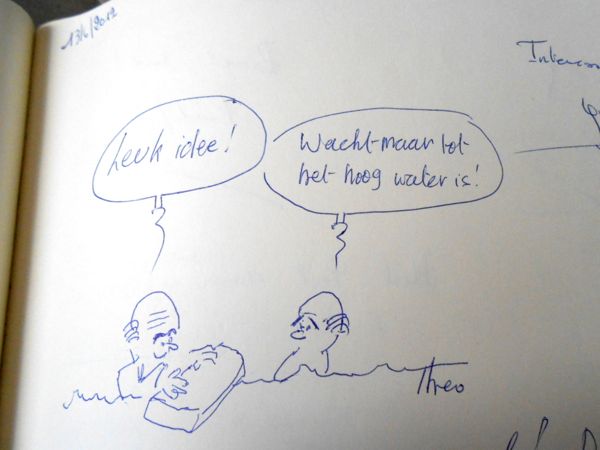 13/6/2012
Leuk idee!
Wacht maar tot
het hoog water is!
Theo